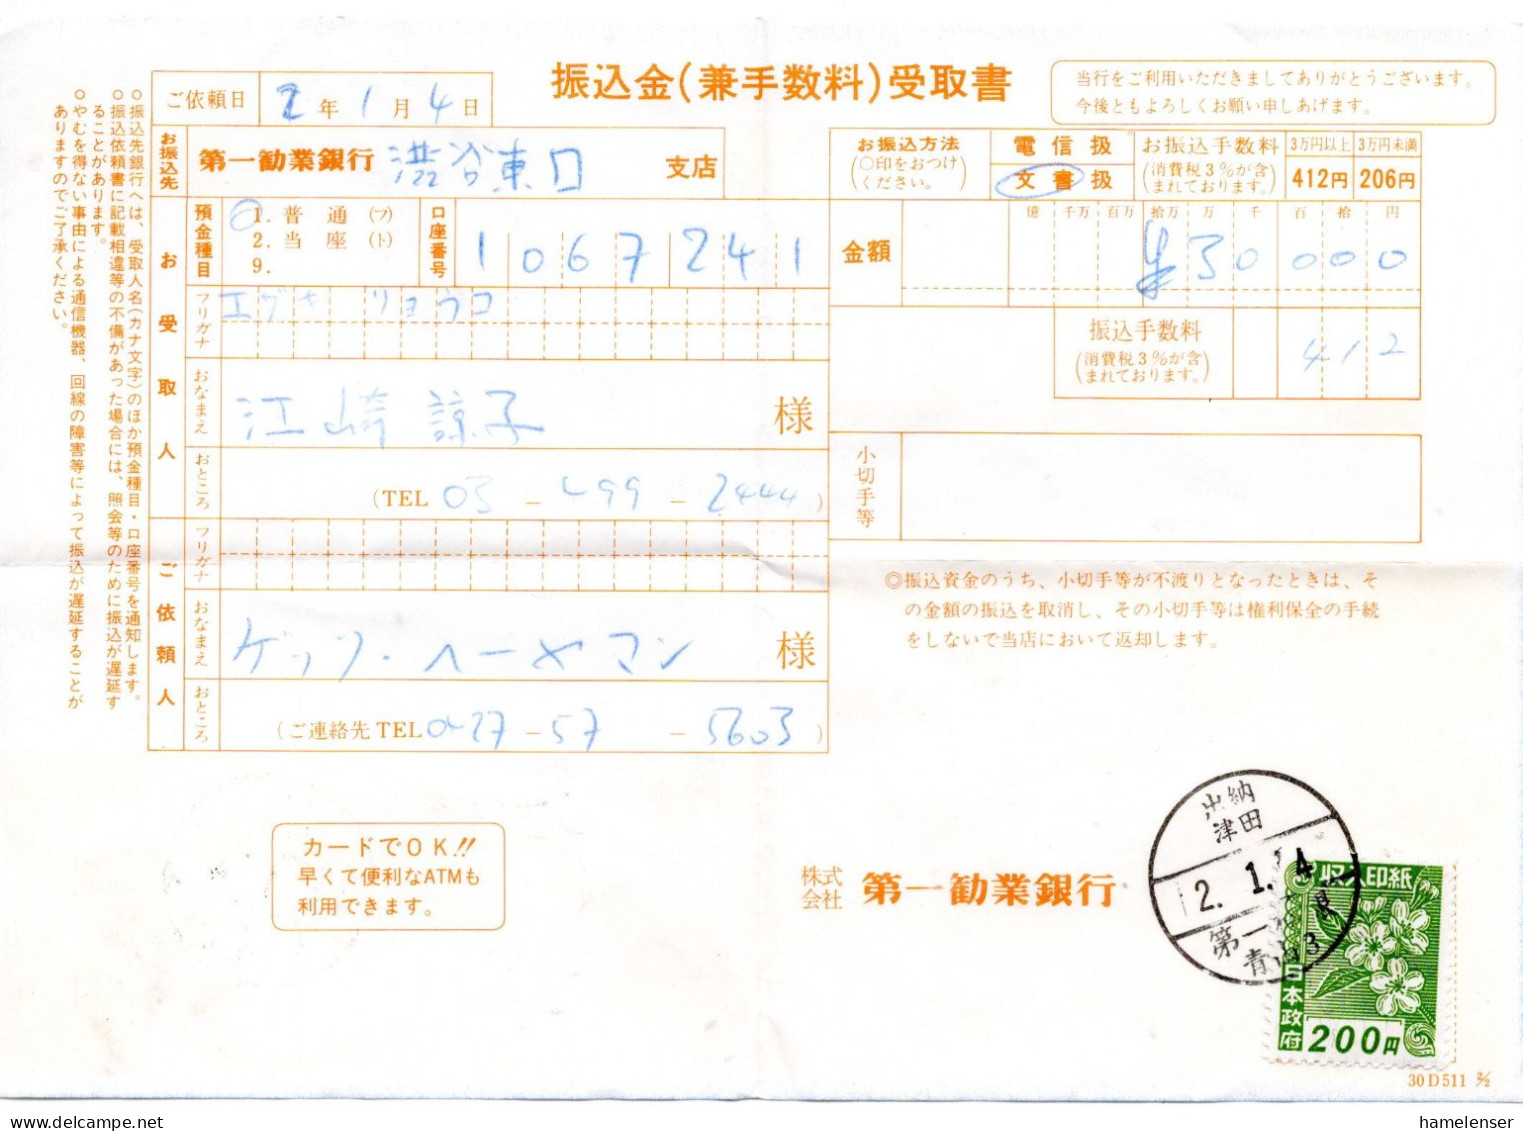 振込金(兼手数料)受取書
当行をご利用いただきましてありがとうございます。
今後ともよろしくお願い申しあげます。
ご依頼日 2年1月4日
お振込先 第一勧業銀行 渋谷東口 支店
お振込方法
(○印をおつけください。)
電信扱
文書扱
お振込手数料
(消費税3%が含まれております。)
3万円以上 3万円未満
412円 206円
お受取人
預金種目
1. 普通 (フ)
2. 当座 (ト)
9.
口座番号 1067241
金額
億 千万 百万 拾万 万 千 百 拾 円
¥30000
フリガナ エザキ リョウコ
振込手数料
(消費税3%が含まれております。)
412
おなまえ 江崎諒子 様
おところ
(TEL 03-499-2444)
小切手等
ご依頼人
フリガナ
おなまえ ゲッツ・ヘーヤマン 様
おところ
(ご連絡先TEL 0427-57-5603)
◎振込資金のうち、小切手等が不渡りとなったときは、そ
の金額の振込を取消し、その小切手等は権利保全の手続
をしないで当店において返却します。
○振込先銀行へは、受取人名(カナ文字)のほか預金種目・口座番号を通知します。
○振込依頼書に記載相違等の不備があった場合には、照会等のために振込が遅延す
ることがあります。
○やむを得ない事由による通信機器、回線の障害等によって振込が遅延することが
ありますのでご了承ください。
カードでOK!!
早くて便利なATMも
利用できます。
株式会社 第一勧業銀行
出納
津田
2.1.4
第一
青山3
収入印紙
日本政府
200円
30D511 2/2
hamelenser